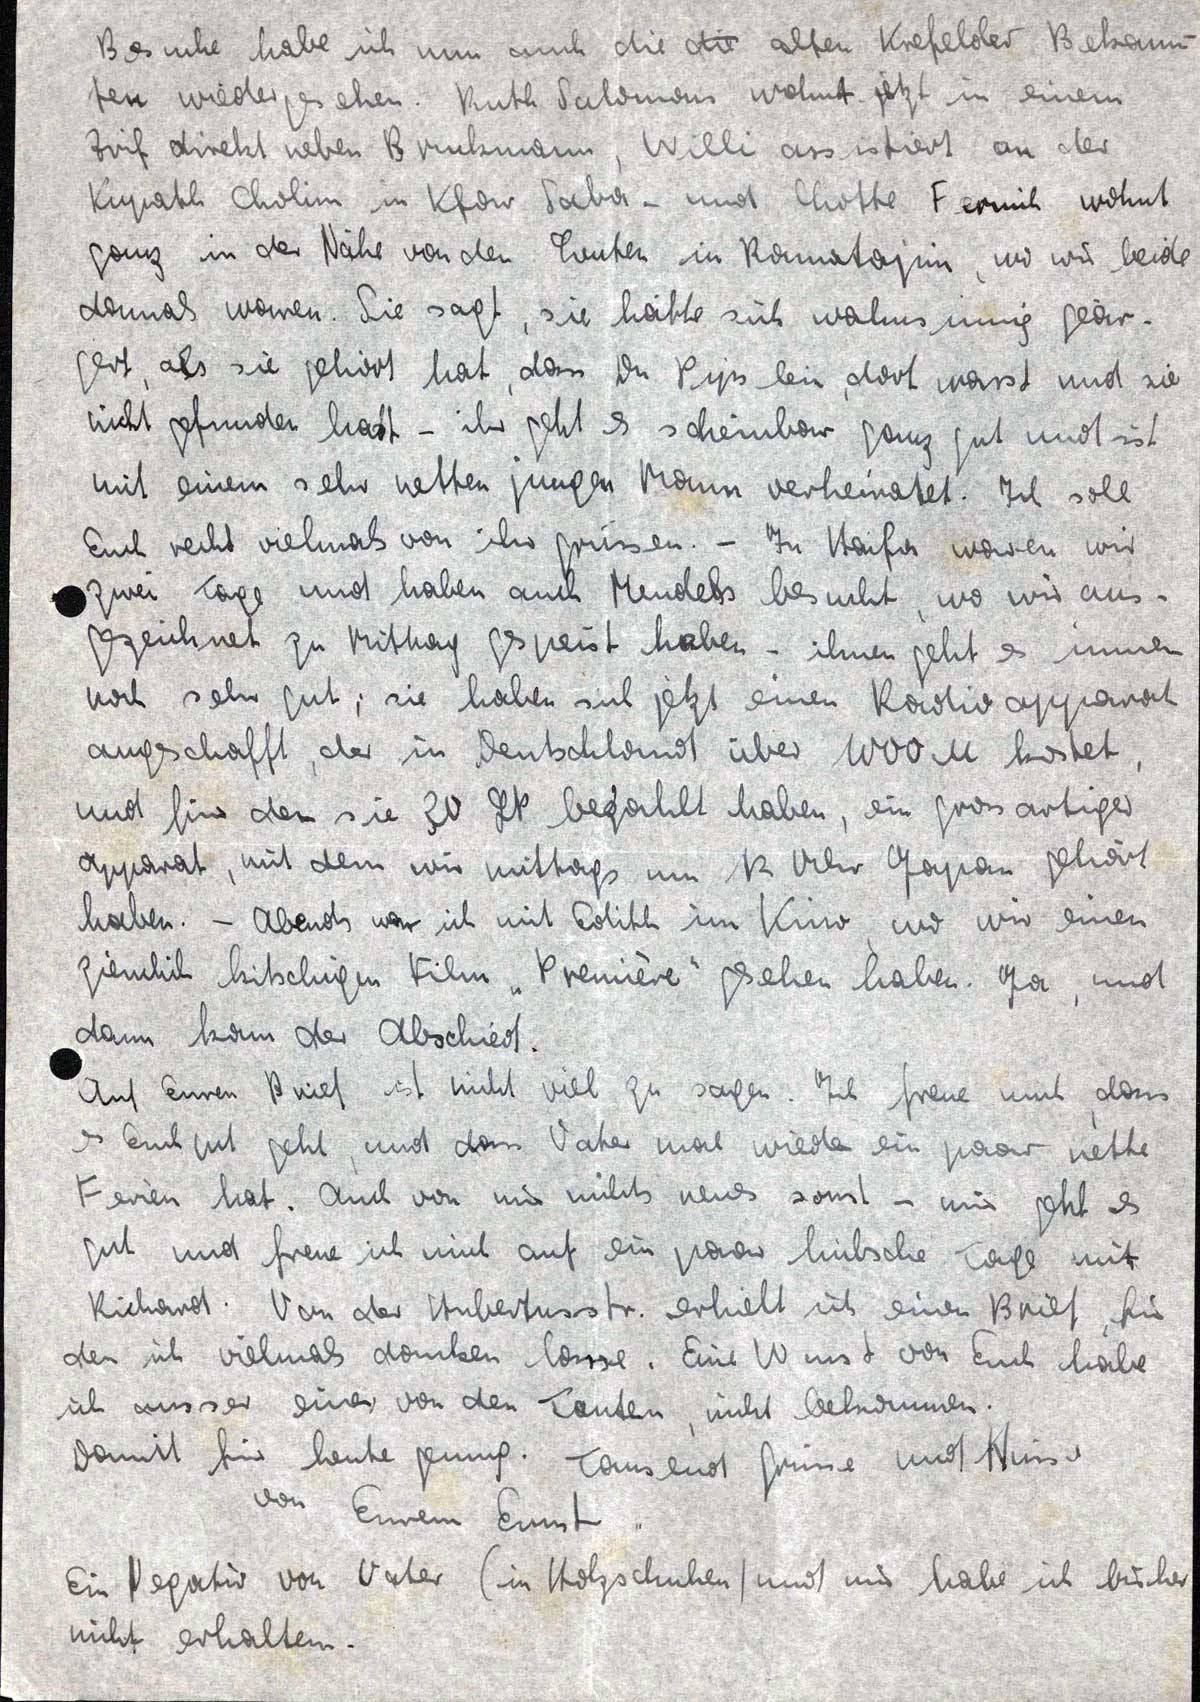 Besuche habe ich nun auch die die alten Krefelder Bekann-
ten wiedergesehen. Ruth Salomons wohnt jetzt in einem
Zrif direkt neben Bruckmann, Willi assistiert an der
Kupath Cholim in Kfar Saba - und Lotte Fermich wohnt
ganz in der Nähe von den Leuten in Ramatajim, wo wir beide
damals waren. Sie sagt, sie hätte sich wahnsinnig geär-
gert, als sie gehört hat, dass Du Pips lein, dort warst und sie
nicht gefunden hast - ihr geht es scheinbar ganz gut und ist
mit einem sehr netten jungen Mann verheiratet. Ich soll
Euch recht vielmals von ihr grüssen. - In Haifa waren wir
zwei Tage und haben auch Mendels besucht, wo wir aus-
gezeichnet zu Mittag gespeist haben - ihnen geht es immer
noch sehr gut; sie haben sich jetzt einen Radioapparat
angeschafft, der in Deutschland über 1000 M kostet,
und für den sie 30 LP bezahlt haben, ein grosartiger
Apparat, mit dem wir mittags um 12 Uhr Japan gehört
haben. - Abends war ich mit Edith im Kino, wo wir einen
ziemlich kitschigen Film „Première" gesehen haben. Ja, und
dann kam der Abschied.
Auf Euren Brief ist nicht viel zu sagen. Ich freue mich, dass
es Euch gut geht, und dass Vater mal wieder ein paar nette
Ferien hat. Auch von mir nichts neues sonst - mir geht es
gut und freue ich mich auf ein paar hübsche Tage mit
Richard. Von der Hubertusstr. erhielt ich einen Brief, für
den ich vielmals danken lasse. Eine Wurst von Euch habe
ich ausser einer von den Tanten, nicht bekommen.
Damit für heute genug. Tausend Grüsse und Küsse
von Eurem Ernst
Ein Negativ von Vater (in Holzschuhen) und mir habe ich bisher
nicht erhalten.